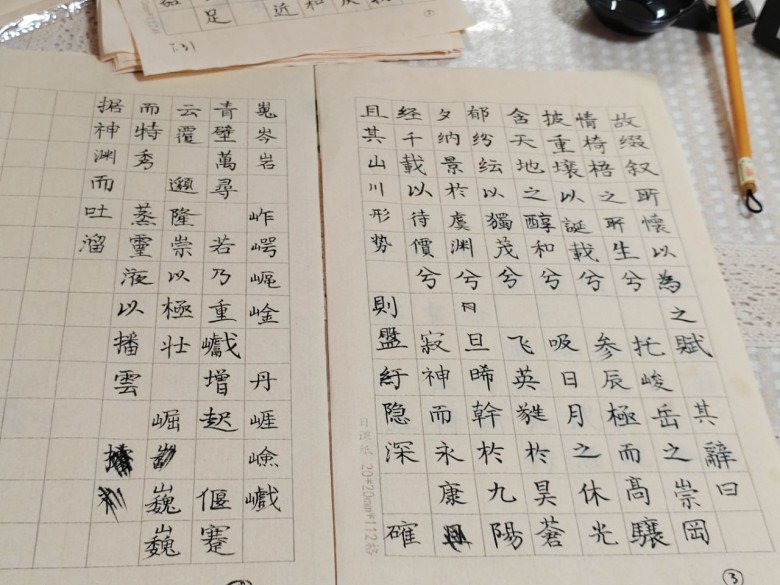 故缀叙所懷以為之賦其辭曰
情椅梧之所生兮托峻岳之崇岡
披重壤以誕載兮参辰極而高驤
含天地之醇和兮吸日月之休光
郁纷纭以獨茂兮飞英蕤於昊蒼
夕纳景於虞渊兮日旦晞幹於九陽
经千載以待價兮寂神而永康
且其山川形势則盤紆隐深確
③
20*20mm*112格
嵬岑岩岞崿嶇崯丹崖嶮巇
青壁萬尋若乃重巘增起偃蹇
云覆邈隆崇以極壮崛巍巍
而特秀蒸靈液以播雲
据神渊而吐溜
足
近
和
7.31